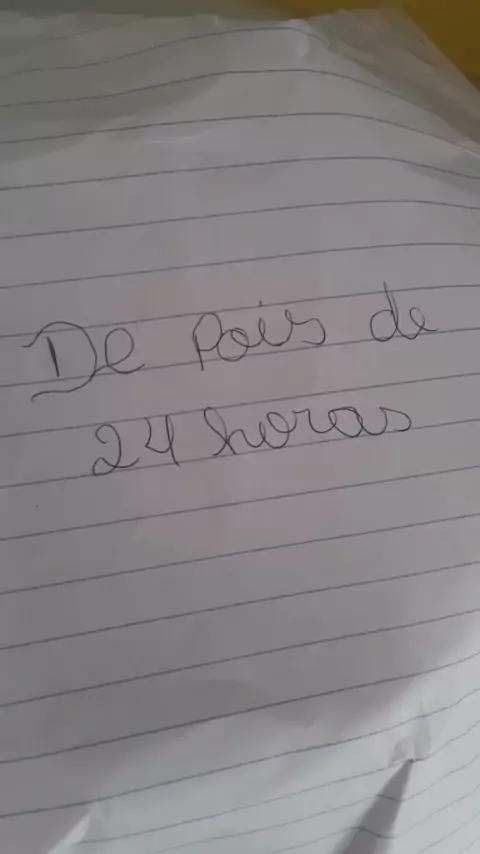 De Pois de
24 horas